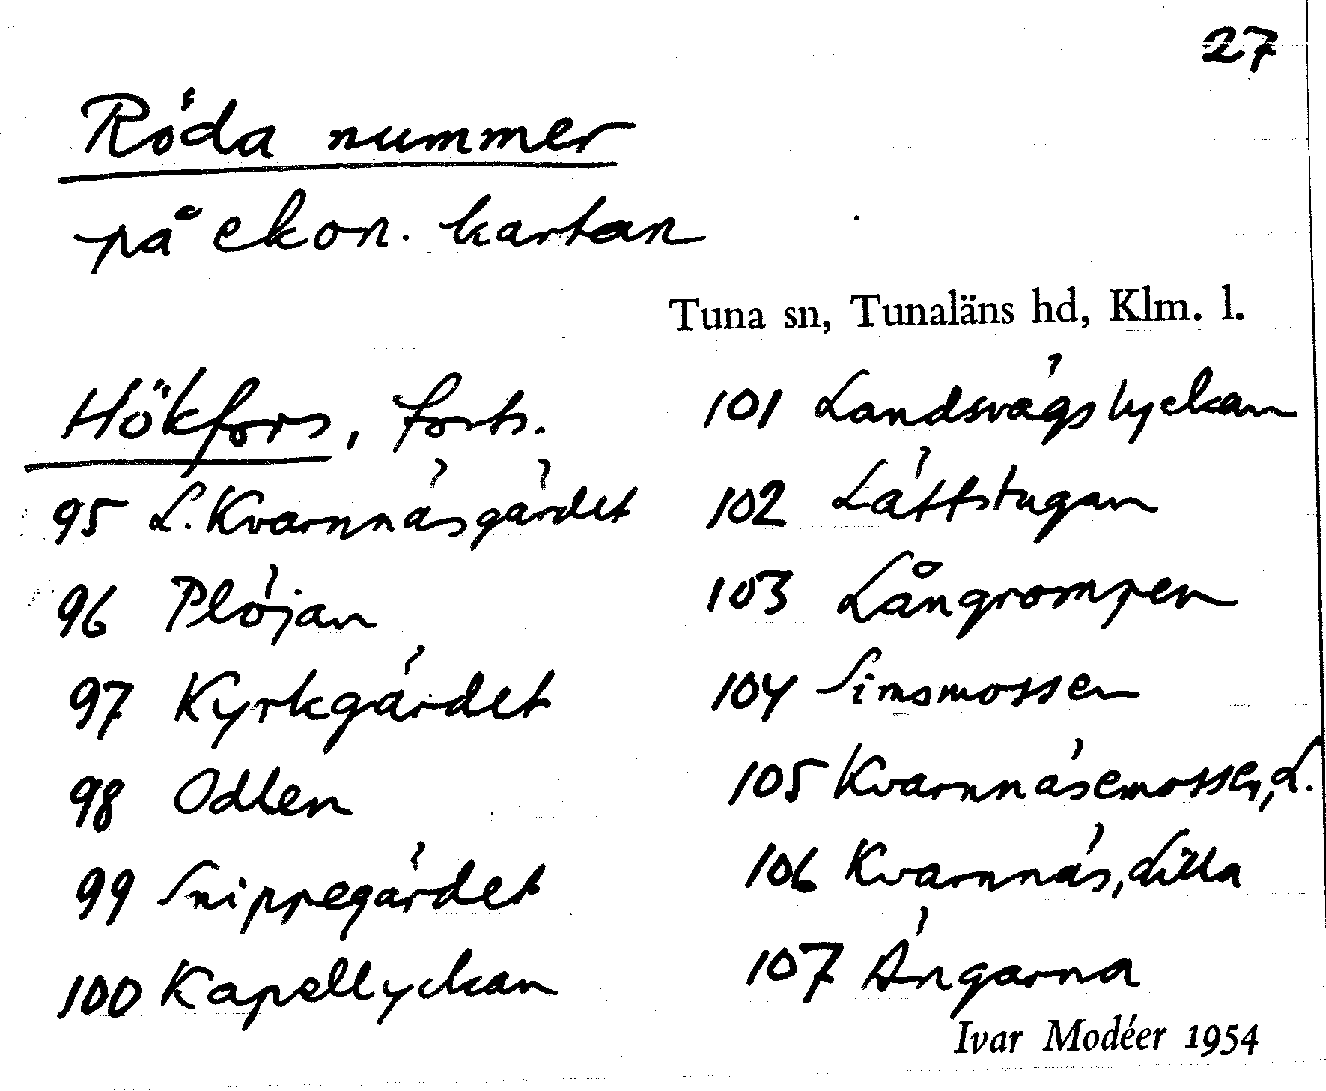 27
Röda nummer
på ekon. kartan
Tuna sn, Tunaläns hd, Klm. l.
Hökfors, forts.
95 L. Kvarnnäsgärdet
96 Plöjan
97 Kyrkgärdet
98 Odlen
99 Snippegärdet
100 Kapellyckan
101 Landsvägslyckan
102 Lättstugan
103 Långrompen
104 Simsmossen
105 Kvarnnäsemossen, L.
106 Kvarnnäs, Lilla
107 Ängarna
Ivar Modéer 1954